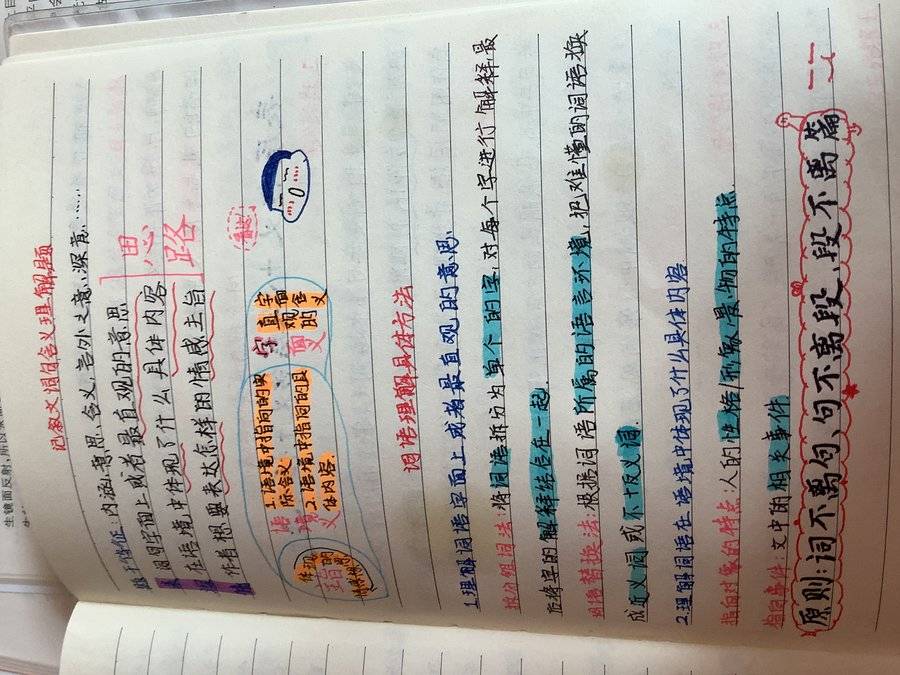 记叙文词句含义理解题
题干特征：内涵、意思、含义、言外之意、深意……
词字面上或者最直观的意思
在语境中体现了什么具体内容
作者想要表达怎样的情感主旨
思路
字面义
字面直观的含义
语境义
1.语境中指向的实际含义
2.语境中指向的具体内容。
主旨义
词语理解具体方法
1.理解词语字面上或者最直观的意思.
拆分组词法：将词语拆分为单个的字，对每个字进行解释，最
后将字的解释结合在一起.
语境替换法：根据词语所属的语言环境，把难懂的词语换
成近义词或不+反义词.
2.理解词语在语境中体现了什么具体内容
指向对象的特点：人的性格和事、景、物的特点
指向事件：文中的相关事件
原则：词不离句、句不离段、段不离篇